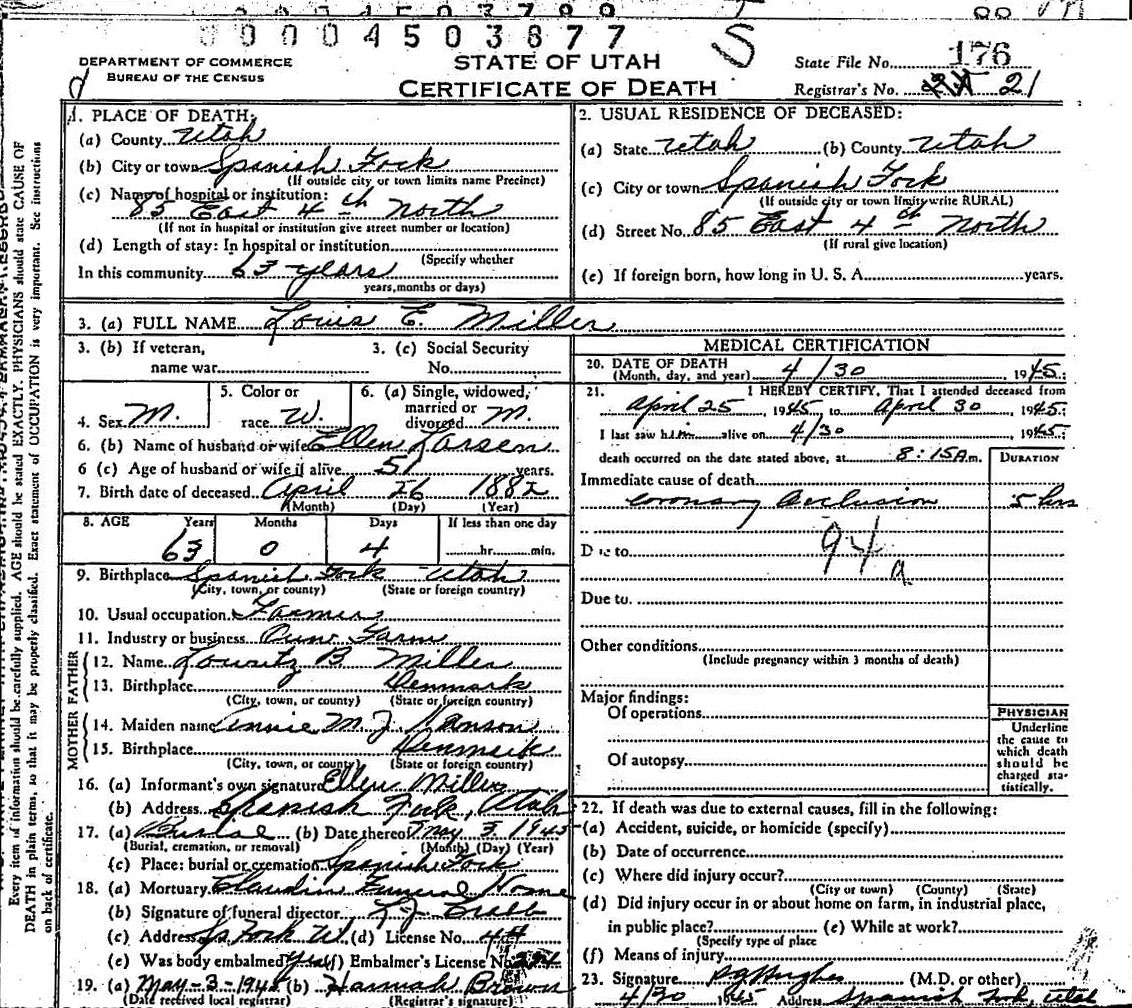 00004503677
S
DEPARTMENT OF COMMERCE
BUREAU OF THE CENSUS
STATE OF UTAH
CERTIFICATE OF DEATH
State File No. 176
Registrar's No. 21
Every item of information should be carefully supplied. AGE should be stated EXACTLY. PHYSICIANS should state CAUSE OF
DEATH in plain terms, so that it may be properly classified. Exact statement of OCCUPATION is very important. See instructions
on back of certificate.
1. PLACE OF DEATH:
(a) County Utah
(b) City or town Spanish Fork
(If outside city or town limits name Precinct)
(c) Name of hospital or institution:
85 East 4th North
(If not in hospital or institution give street number or location)
(d) Length of stay: In hospital or institution
(Specify whether
In this community 63 years
years, months or days)
2. USUAL RESIDENCE OF DECEASED:
(a) State Utah (b) County Utah
(c) City or town Spanish Fork
(If outside city or town limits write RURAL)
(d) Street No. 85 East 4th North
(If rural give location)
(e) If foreign born, how long in U. S. A. years.
3. (a) FULL NAME Louis E. Miller
3. (b) If veteran,
name war
3. (c) Social Security
No.
4. Sex M.
5. Color or
race W.
6. (a) Single, widowed,
married or
divorced M.
6. (b) Name of husband or wife Ellen Larsen
6 (c) Age of husband or wife if alive 51 years.
7. Birth date of deceased April 26 1882
(Month) (Day) (Year)
8. AGE Years Months Days If less than one day
63 0 4 hr. min.
9. Birthplace Spanish Fork Utah
(City, town, or county) (State or foreign country)
10. Usual occupation Farmer
11. Industry or business Own Farm
FATHER
12. Name Lauritz B Miller
13. Birthplace Denmark
(City, town, or county) (State or foreign country)
MOTHER
14. Maiden name Annie M. J. Hanson
15. Birthplace Denmark
(City, town, or county) (State or foreign country)
16. (a) Informant's own signature Ellen Miller
(b) Address Spanish Fork, Utah
17. (a) Burial (b) Date thereof May 3 1945
(Burial, cremation, or removal) (Month) (Day) (Year)
(c) Place: burial or cremation Spanish Fork
18. (a) Mortuary Claudin Funeral Home
(b) Signature of funeral director
(c) Address Sp Fork U. (d) License No.
(e) Was body embalmed yes (f) Embalmer's License No.
19. (a) May-3-1945 (b) Hannah Brown
(Date received local registrar) (Registrar's signature)
MEDICAL CERTIFICATION
20. DATE OF DEATH
(Month, day, and year) 4/30, 1945:
21. I HEREBY CERTIFY, That I attended deceased from
April 25, 1945, to April 30, 1945:
I last saw him alive on 4/30, 1945:
death occurred on the date stated above, at 8:15 A m.
DURATION
Immediate cause of death
Coronary Occlusion 5 hrs
94a
Due to
Due to
Other conditions
(Include pregnancy within 3 months of death)
Major findings:
Of operations
Of autopsy
PHYSICIAN
Underline
the cause to
which death
should be
charged sta-
tistically.
22. If death was due to external causes, fill in the following:
(a) Accident, suicide, or homicide (specify)
(b) Date of occurrence
(c) Where did injury occur?
(City or town) (County) (State)
(d) Did injury occur in or about home on farm, in industrial place,
in public place? (e) While at work?
(Specify type of place
(f) Means of injury
23. Signature Hughes (M.D. or other)
4/30 1945 Address Spanish Fork, Utah